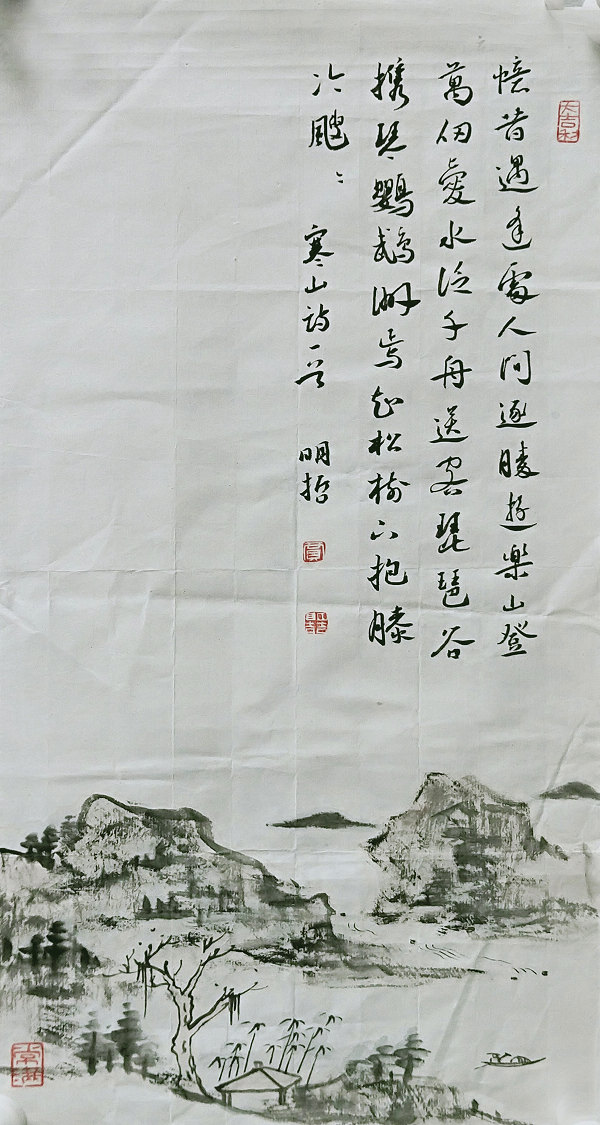 大吉利
憶昔遇逢處人间逐勝遊樂山登
萬仞愛水泛千舟送客琵琶谷
携琴鸚鵡洲焉知松樹下抱膝
冷颼〻 寒山诗一首 明哲